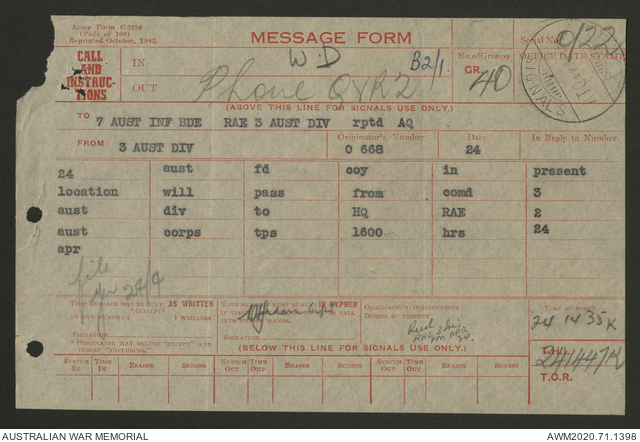 Army Form C.2136
(Pads of 100)
Reprinted October, 1942.
MESSAGE FORM
Serial No.
CALL AND INSTRUCTIONS
IN
W.D
B2/1.
No. of Groups
GR. 40
OFFICE DATE STAMP
0/22
SIGNALS
OUT
Phone
(ABOVE THIS LINE FOR SIGNALS USE ONLY.)
TO 7 AUST INF BDE RAE 3 AUST DIV rptd AQ
FROM 3 AUST DIV
Originator's Number
O 668
Date
24
In Reply to Number
24 aust fd coy in present
location will pass from comd 3
aust div to HQ RAE 2
aust corps tps 1600 hrs 24
apr
file
24/4
THIS MESSAGE MAY BE SENT AS WRITTEN
(EXCEPT)
BY ANY MEANS ( ) WIRELESS
SIGNATURE
* ORIGINATOR MAY DELETE "EXCEPT" AND INSERT "INCLUDING."
IN CYPHER
SIGNATURE
ORIGINATOR'S INSTRUCTIONS
DEGREE OF PRIORITY
TIME OF ORIGIN
24 1435K
(BELOW THIS LINE FOR SIGNALS USE ONLY.)
T.H.I.
241447K
T.O.R.
SYSTEM IN TIME IN READER SENDER SYSTEM OUT TIME OUT READER SENDER SYSTEM OUT TIME OUT READER SENDER
AUSTRALIAN WAR MEMORIAL
AWM2020.71.1398